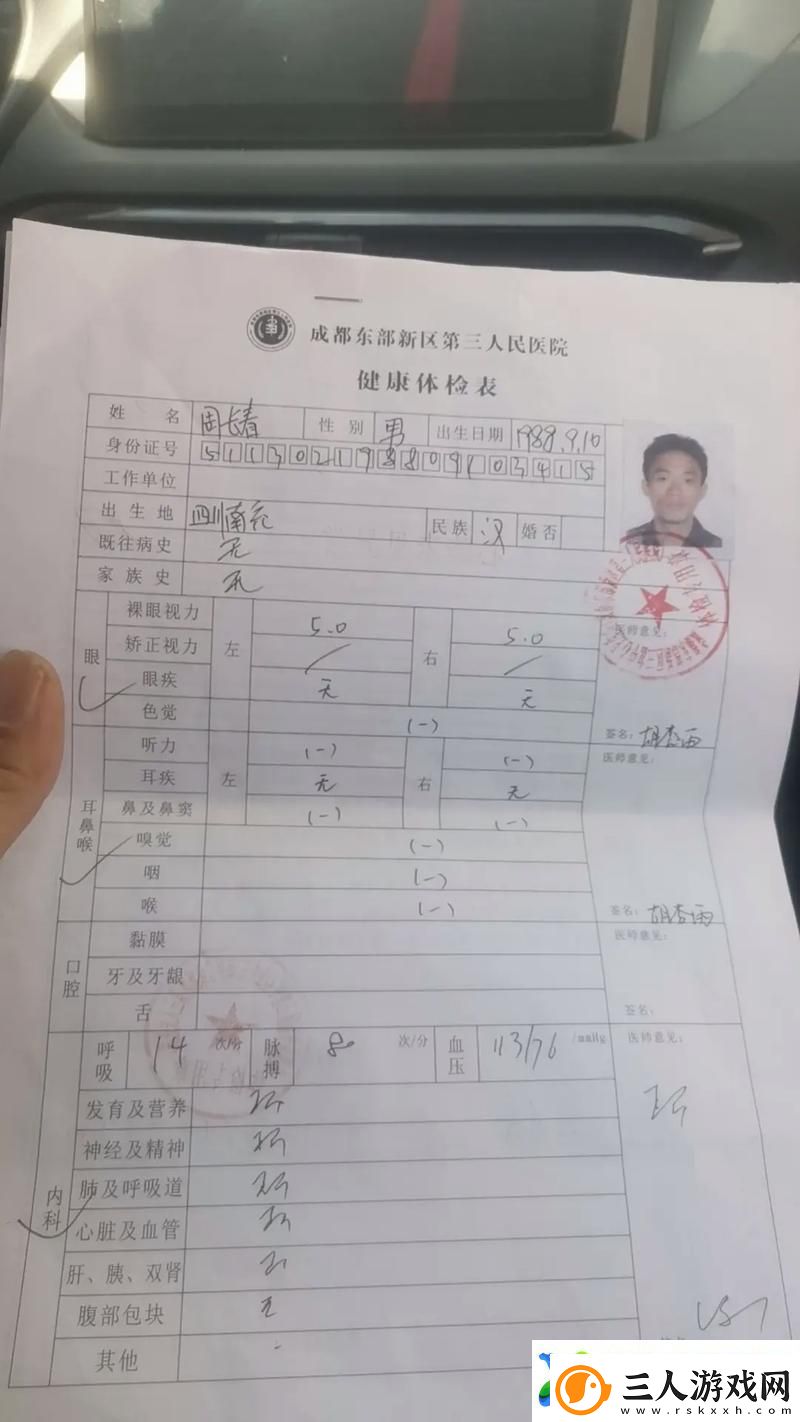 成都东部新区第三人民医院
健康体检表
姓名 周长春 性别 男 出生日期 1988.9.10
身份证号 511302198809103415
工作单位
出生地 四川南充 民族 汉 婚否
既往病史 无
家族史 无
眼 裸眼视力 左 5.0 右 5.0 医师意见:
矫正视力 / /
眼疾 无 无
色觉 (-) 签名: 胡杏雨
耳鼻喉 听力 左 (-) 右 (-) 医师意见:
耳疾 无 无
鼻及鼻窦 (-) (-)
嗅觉 (-)
咽 (-)
喉 (-) 签名: 胡杏雨
口腔 黏膜 医师意见:
牙及牙龈
舌 签名:
内科 呼吸 14 次/分 脉搏 80 次/分 血压 113/76 /mmHg 医师意见:
发育及营养
神经及精神
肺及呼吸道
心脏及血管
肝、胰、双肾
腹部包块 无
其他 -
三人游戏网
www.rskxxh.com